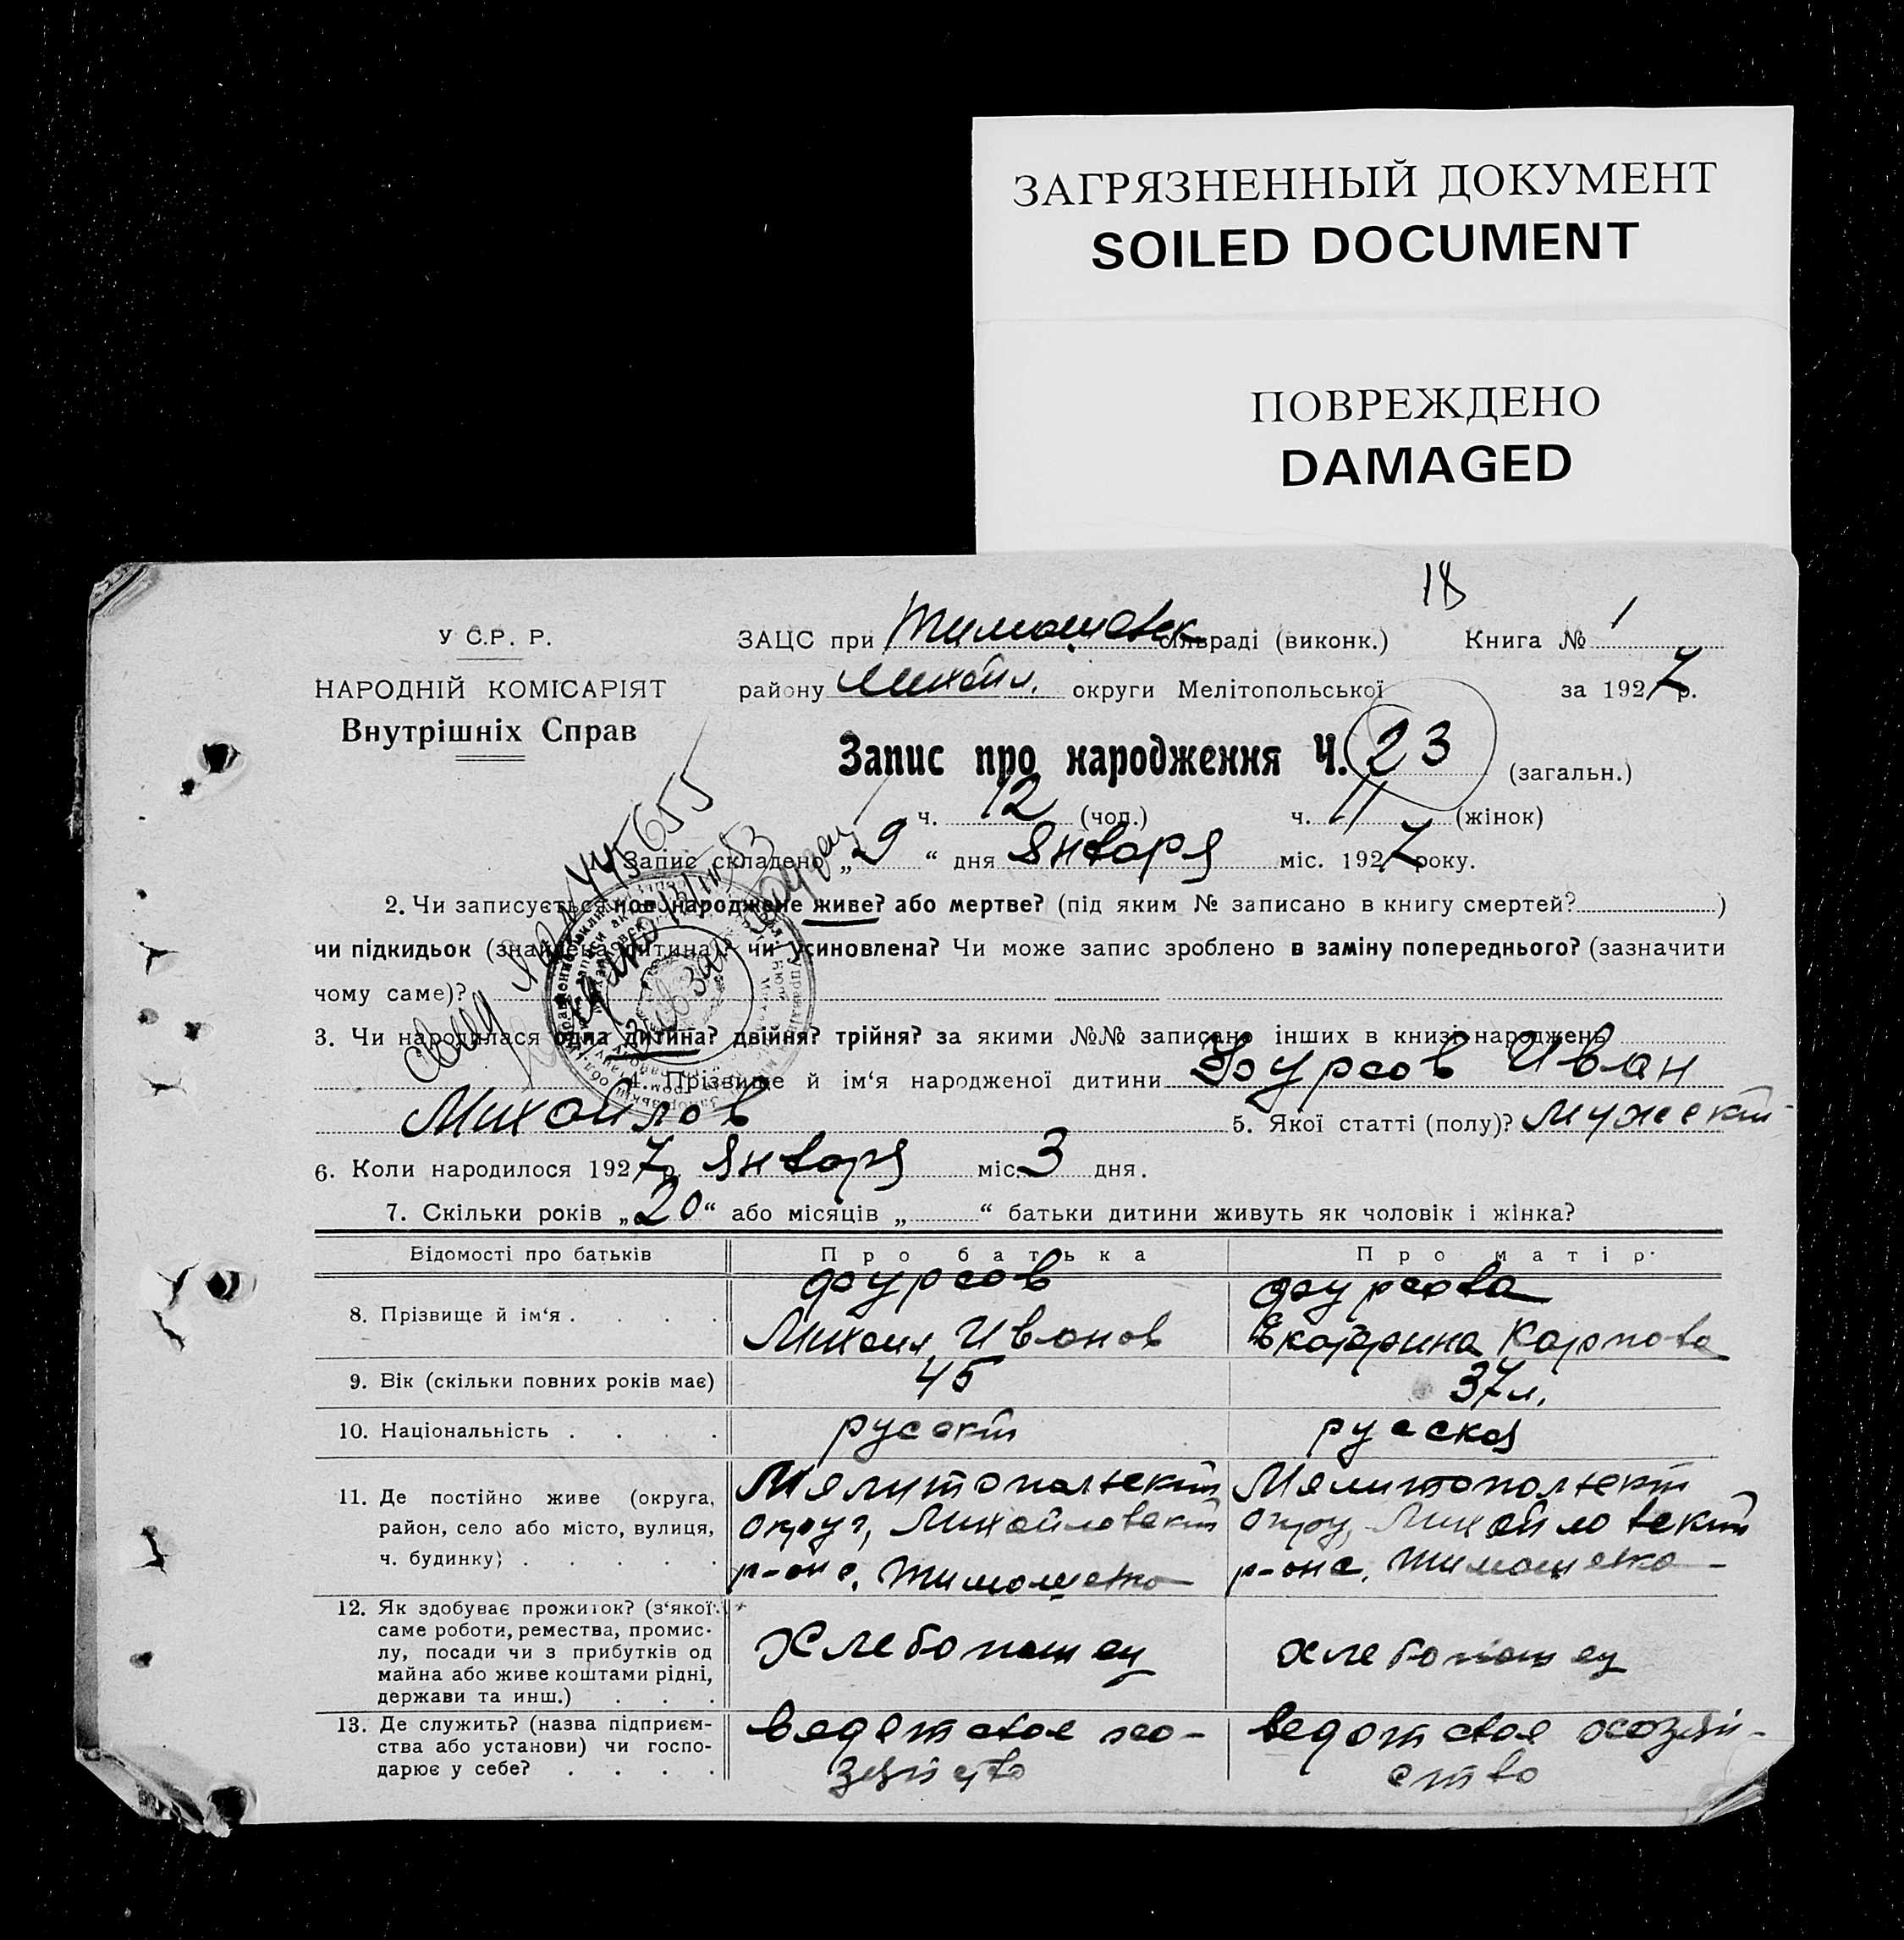 ЗАГРЯЗНЕННЫЙ ДОКУМЕНТ
SOILED DOCUMENT
ПОВРЕЖДЕНО
DAMAGED
18
У С.Р. Р.
НАРОДНІЙ КОМІСАРІЯТ
Внутрішніх Справ
ЗАЦС при Тимошевск сільраді (виконк.) Книга № 1
району Михайл. округи Мелітопольської за 1927 р.
Запис про народження Ч. 23 (загальн.)
ч. 12 (чол.) ч. 11 (жінок)
Запис складено „9“ дня Января міс. 1927 року.
2. Чи записується новонароджене живе? або мертве? (під яким № записано в книгу смертей? )
чи підкидьок (знайдена дитина)? чи усиновлена? Чи може запис зроблено в заміну попереднього? (зазначити
чому саме)?
3. Чи народилася одна дитина? двійня? трійня? за якими №№ записано інших в книзі народжень
4. Прізвище й ім'я народженої дитини Фурсов Иван
Михайлов 5. Якої статті (полу)? мужский
6. Коли народилося 1927 р. Января міс. 3 дня.
7. Скільки років „20“ або місяців „ “ батьки дитини живуть як чоловік і жінка?
Відомості про батьків Про батька Про матір
8. Прізвище й ім‘я . . . . Фурсов Михаил Иванов Фурсова Екатерина Карпова
9. Вік (скільки повних років має) 45 37 л.
10. Національність . . . . русский русская
11. Де постійно живе (округа,
район, село або місто, вулиця,
ч. будинку) . . . . .
Мелитопольский
округ, Михайловский
р-она, Тимошевка
Мелитопольский
окру, Михайловский
р-она, Тимошевка
12. Як здобуває прожиток? (з‘якої
саме роботи, ремества, промис-
лу, посади чи з прибутків од
майна або живе коштами рідні,
держави та инш.) . . .
Хлебопашец
хлебопашец
13. Де служить? (назва підприєм-
ства або установи) чи госпо-
дарює у себе? . . . .
ведет свое хо-
зяйство
ведет свое хозяй-
ство